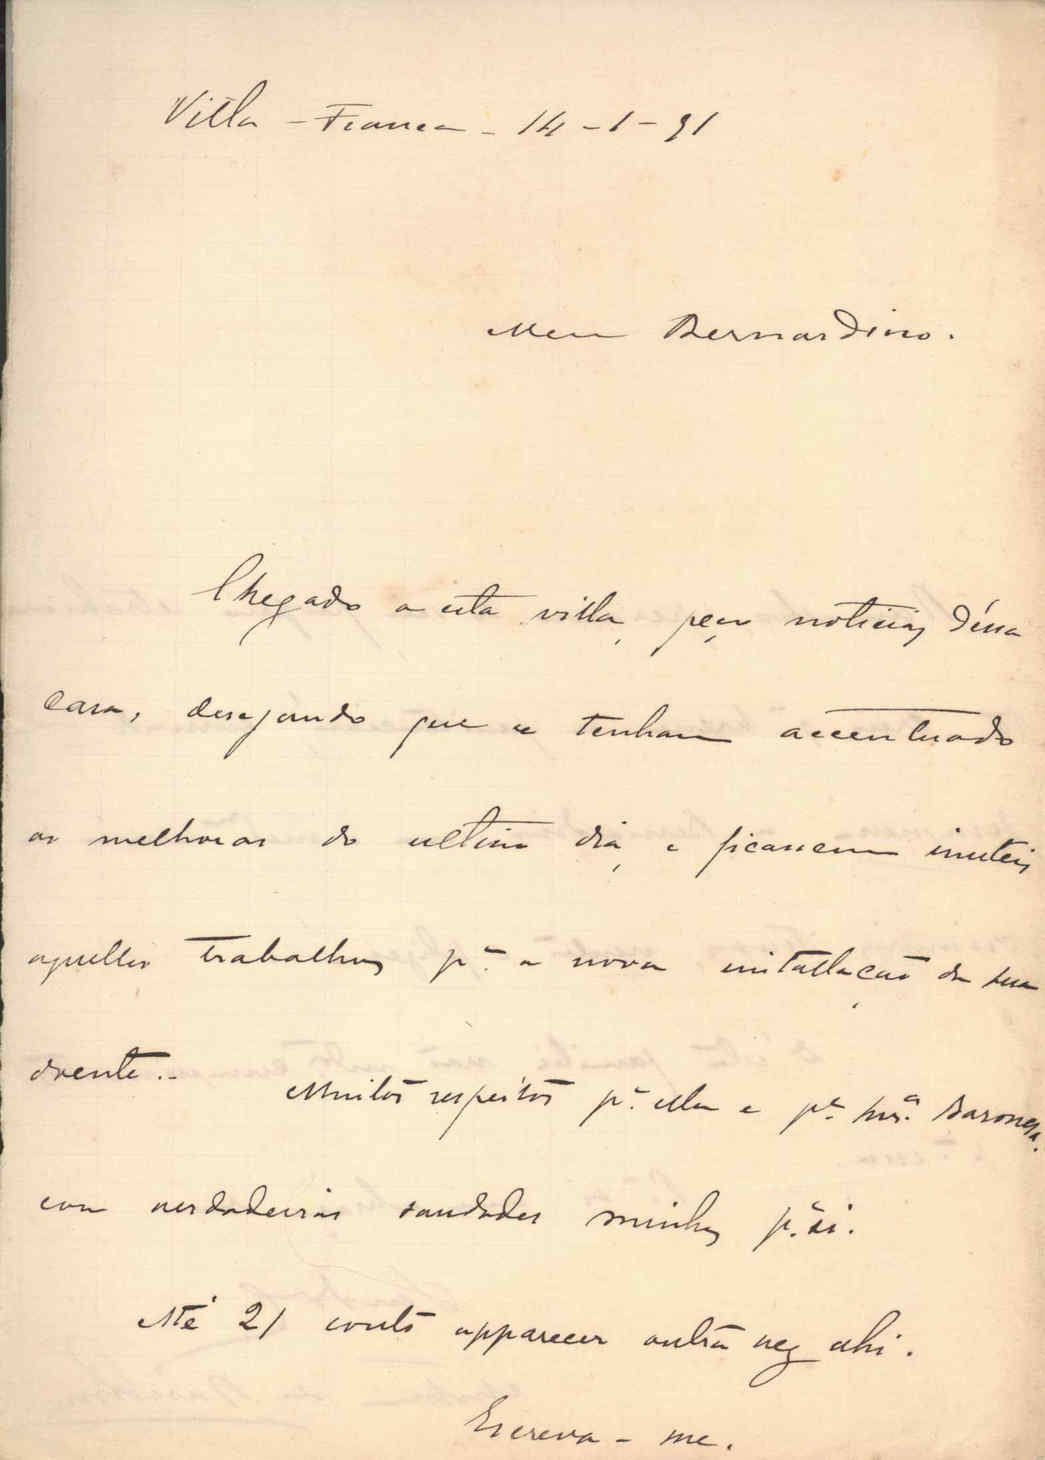 Villa - Franca - 14 - 1 - 91
Meu Bernardino.
Chegado a esta villa, peço noticias d'essa
casa, desejando que se tenham accentuado
as melhoras do ultimo dia, e ficassem inuteis
aquelles trabalhos pª a nova installação da sua
doente. -
Muitos respeitos pª ella e pª Snrª Baroneza.
com verdadeiras saudades minhas pª si.
Até 21 conto apparecer outra vez ahi.
Escreva - me.